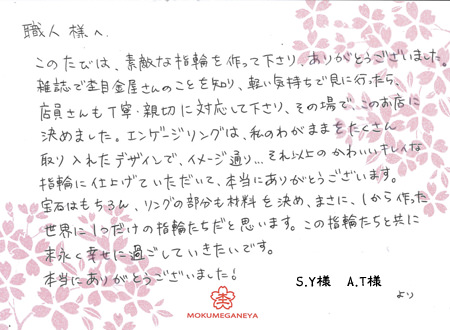 職人様へ
このたびは、素敵な指輪を作って下さり、ありがとうございました。
雑誌で杢目金屋さんのことを知り、軽い気持ちで見に行ったら、
店員さんも丁寧・親切に対応して下さり、その場で、このお店に
決めました。エンゲージリングは、私のわがままをたくさん
取り入れたデザインで、イメージ通り…それ以上のかわいいキレイな
指輪に仕上げていただいて、本当にありがとうございます。
宝石はもちろん、リングの部分も材料を決め、まさに、1から作った
世界に1つだけの指輪たちだと思います。この指輪たちと共に
末永く幸せに過ごしていきたいです。
本当にありがとうございました!
S.Y様 A.T様
より
MOKUMEGANEYA